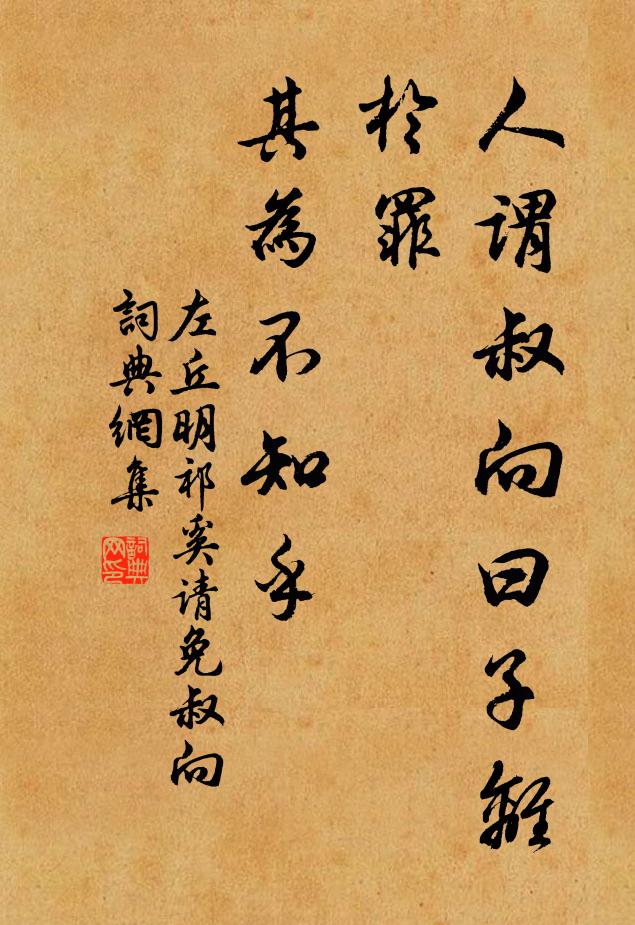 人謂叔向曰子離
於罪
其為不知乎
左丘明祁奚请免叔向
詞典網集
詞典网印